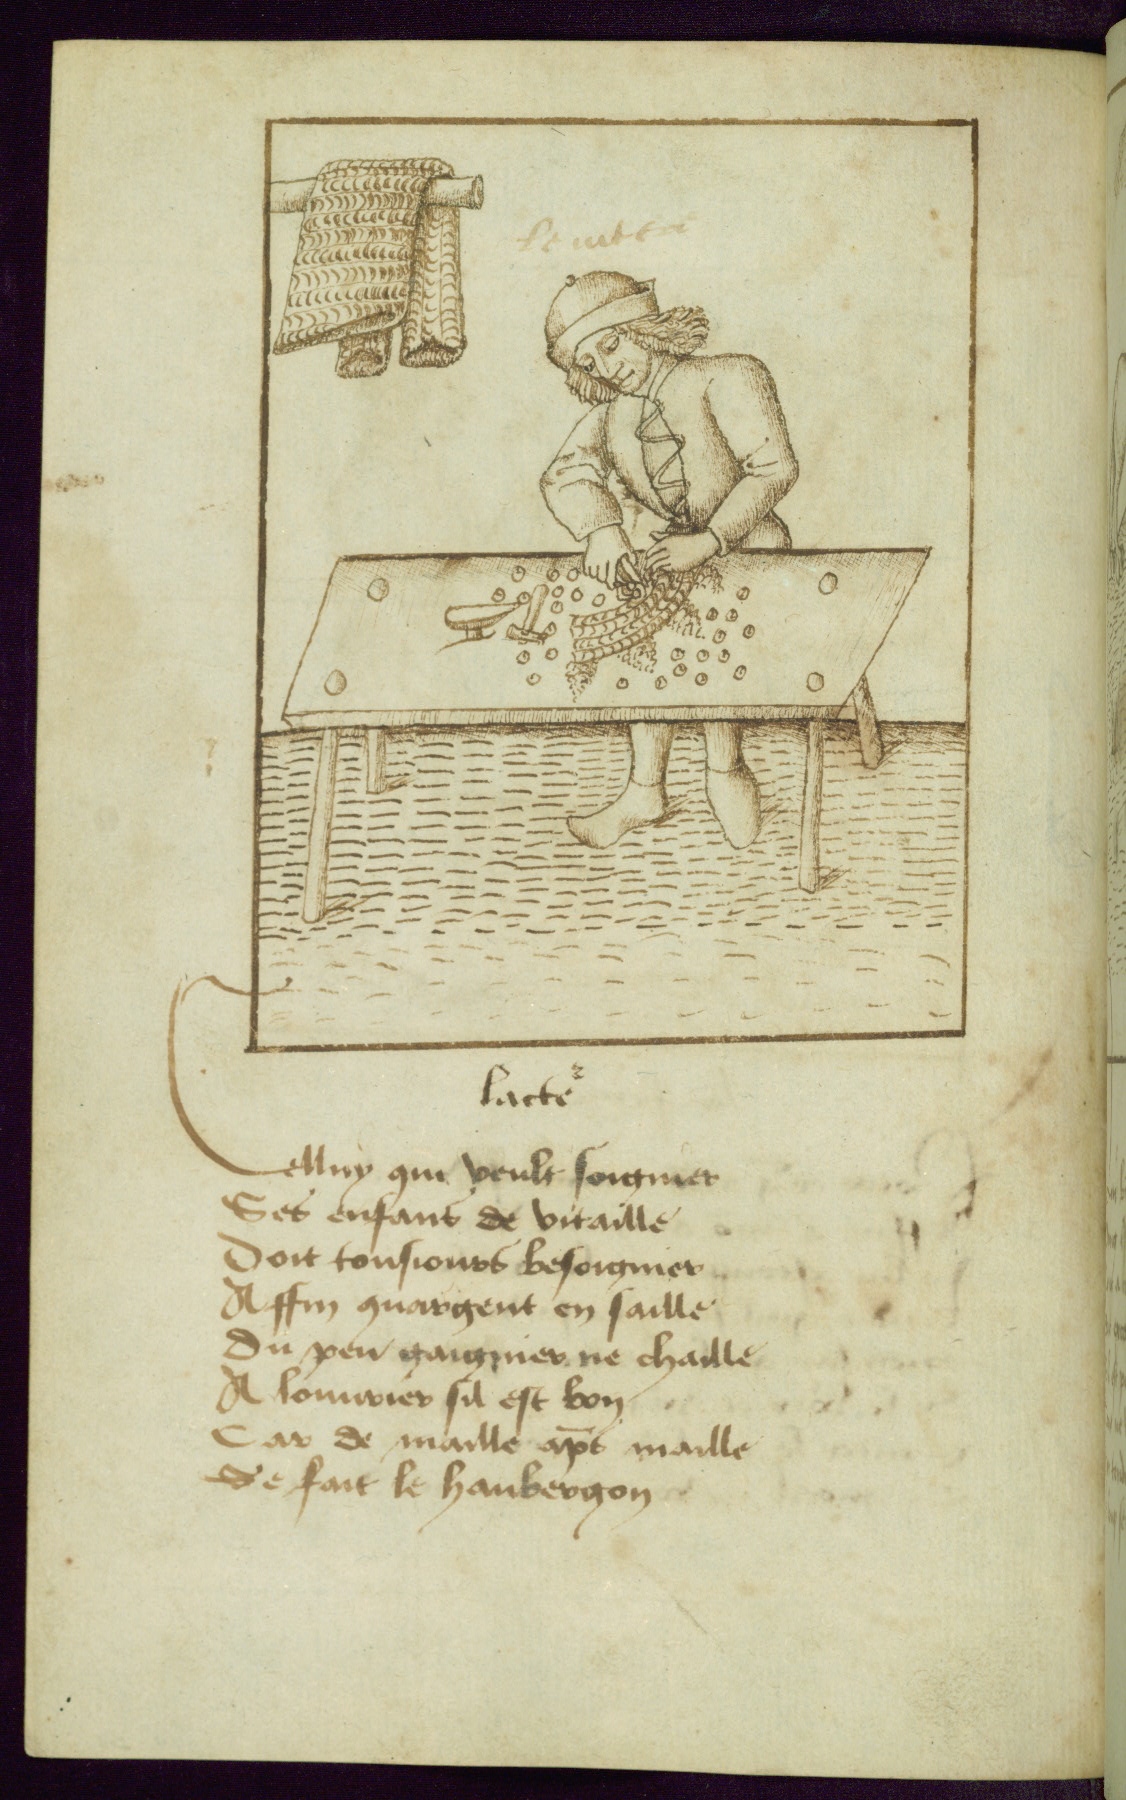 lacteʳ
Celluy qui veult soignier
Ses enfans de vitaille
Doit tousiours besoignier
Affin quargent en saille
Du peu gaignier ne chaille
A louurier sil est bon
Car de maille ap̄s maille
Se fait le haubergon